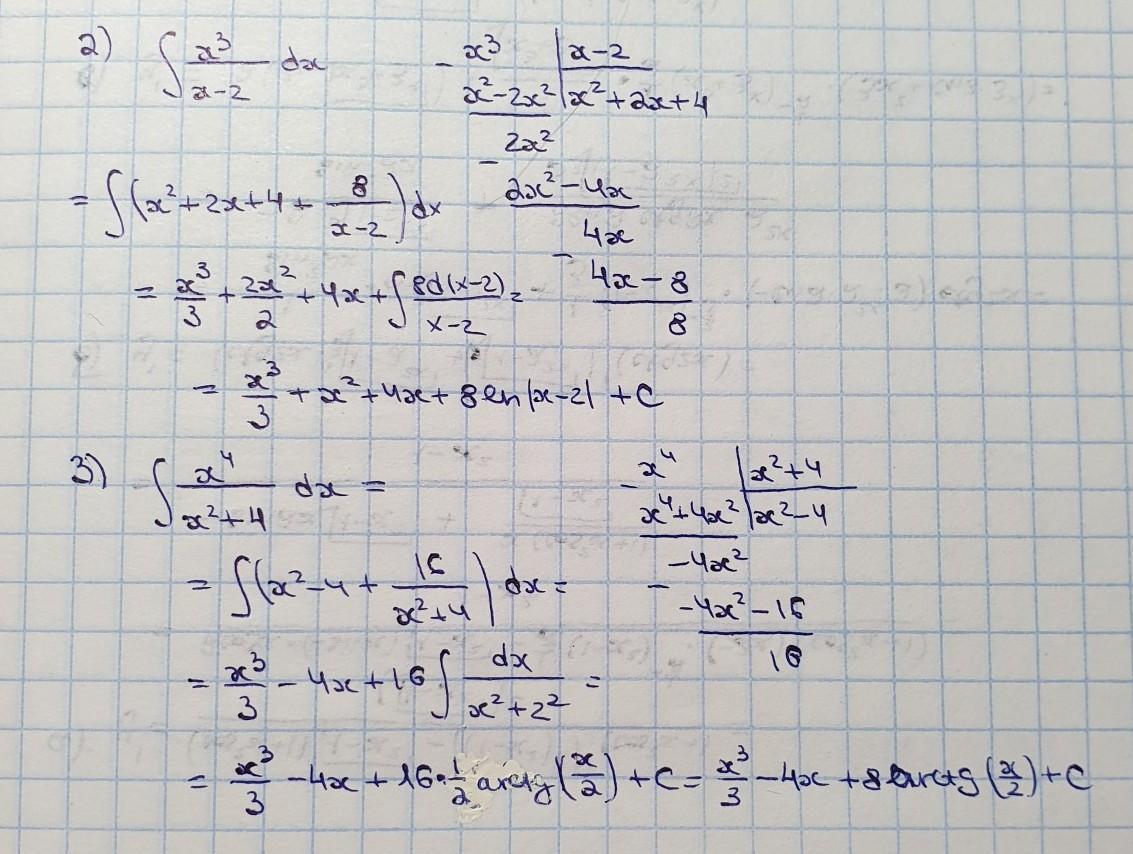 2) ∫ x³/(x-2) dx
- x³ | x-2
x²-2x² | x²+2x+4
- 2x²
2x²-4x
- 4x
4x-8
8
= ∫(x²+2x+4+ 8/(x-2))dx
= x³/3 + 2x²/2 + 4x + ∫ 8d(x-2)/(x-2) =
= x³/3 + x² + 4x + 8 ln|x-2| + C
3) ∫ x⁴/(x²+4) dx =
- x⁴ | x²+4
x⁴+4x² | x²-4
- -4x²
-4x²-16
16
= ∫(x²-4 + 16/(x²+4)) dx =
= x³/3 - 4x + 16 ∫ dx/(x²+2²) =
= x³/3 - 4x + 16·1/2 arctg(x/2) + C = x³/3 - 4x + 8 arctg(x/2) + C